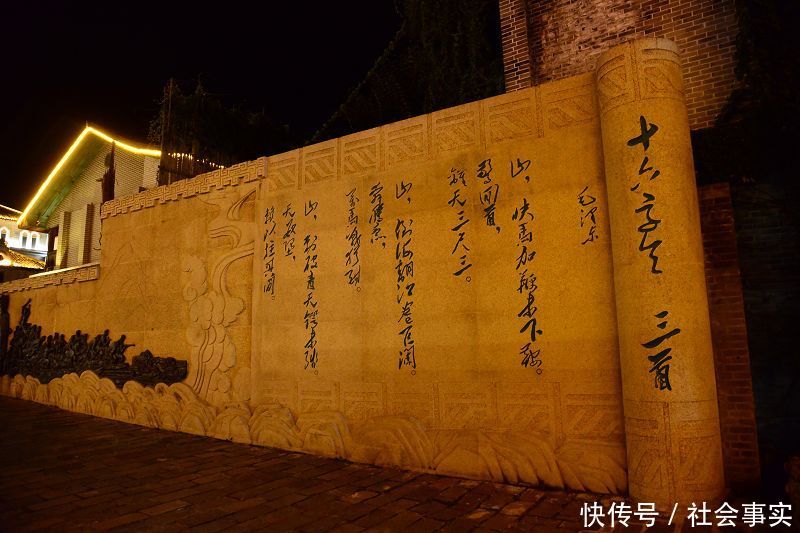 十六字令 三首
毛泽东
山，快馬加鞭未下鞍。
驚回首，
離天三尺三。
山，倒海翻江卷巨瀾。
奔騰急，
万馬戰犹酣。
山，刺破青天锷未殘。
天欲墮，
賴以拄其間。
快传号 / 社会事实